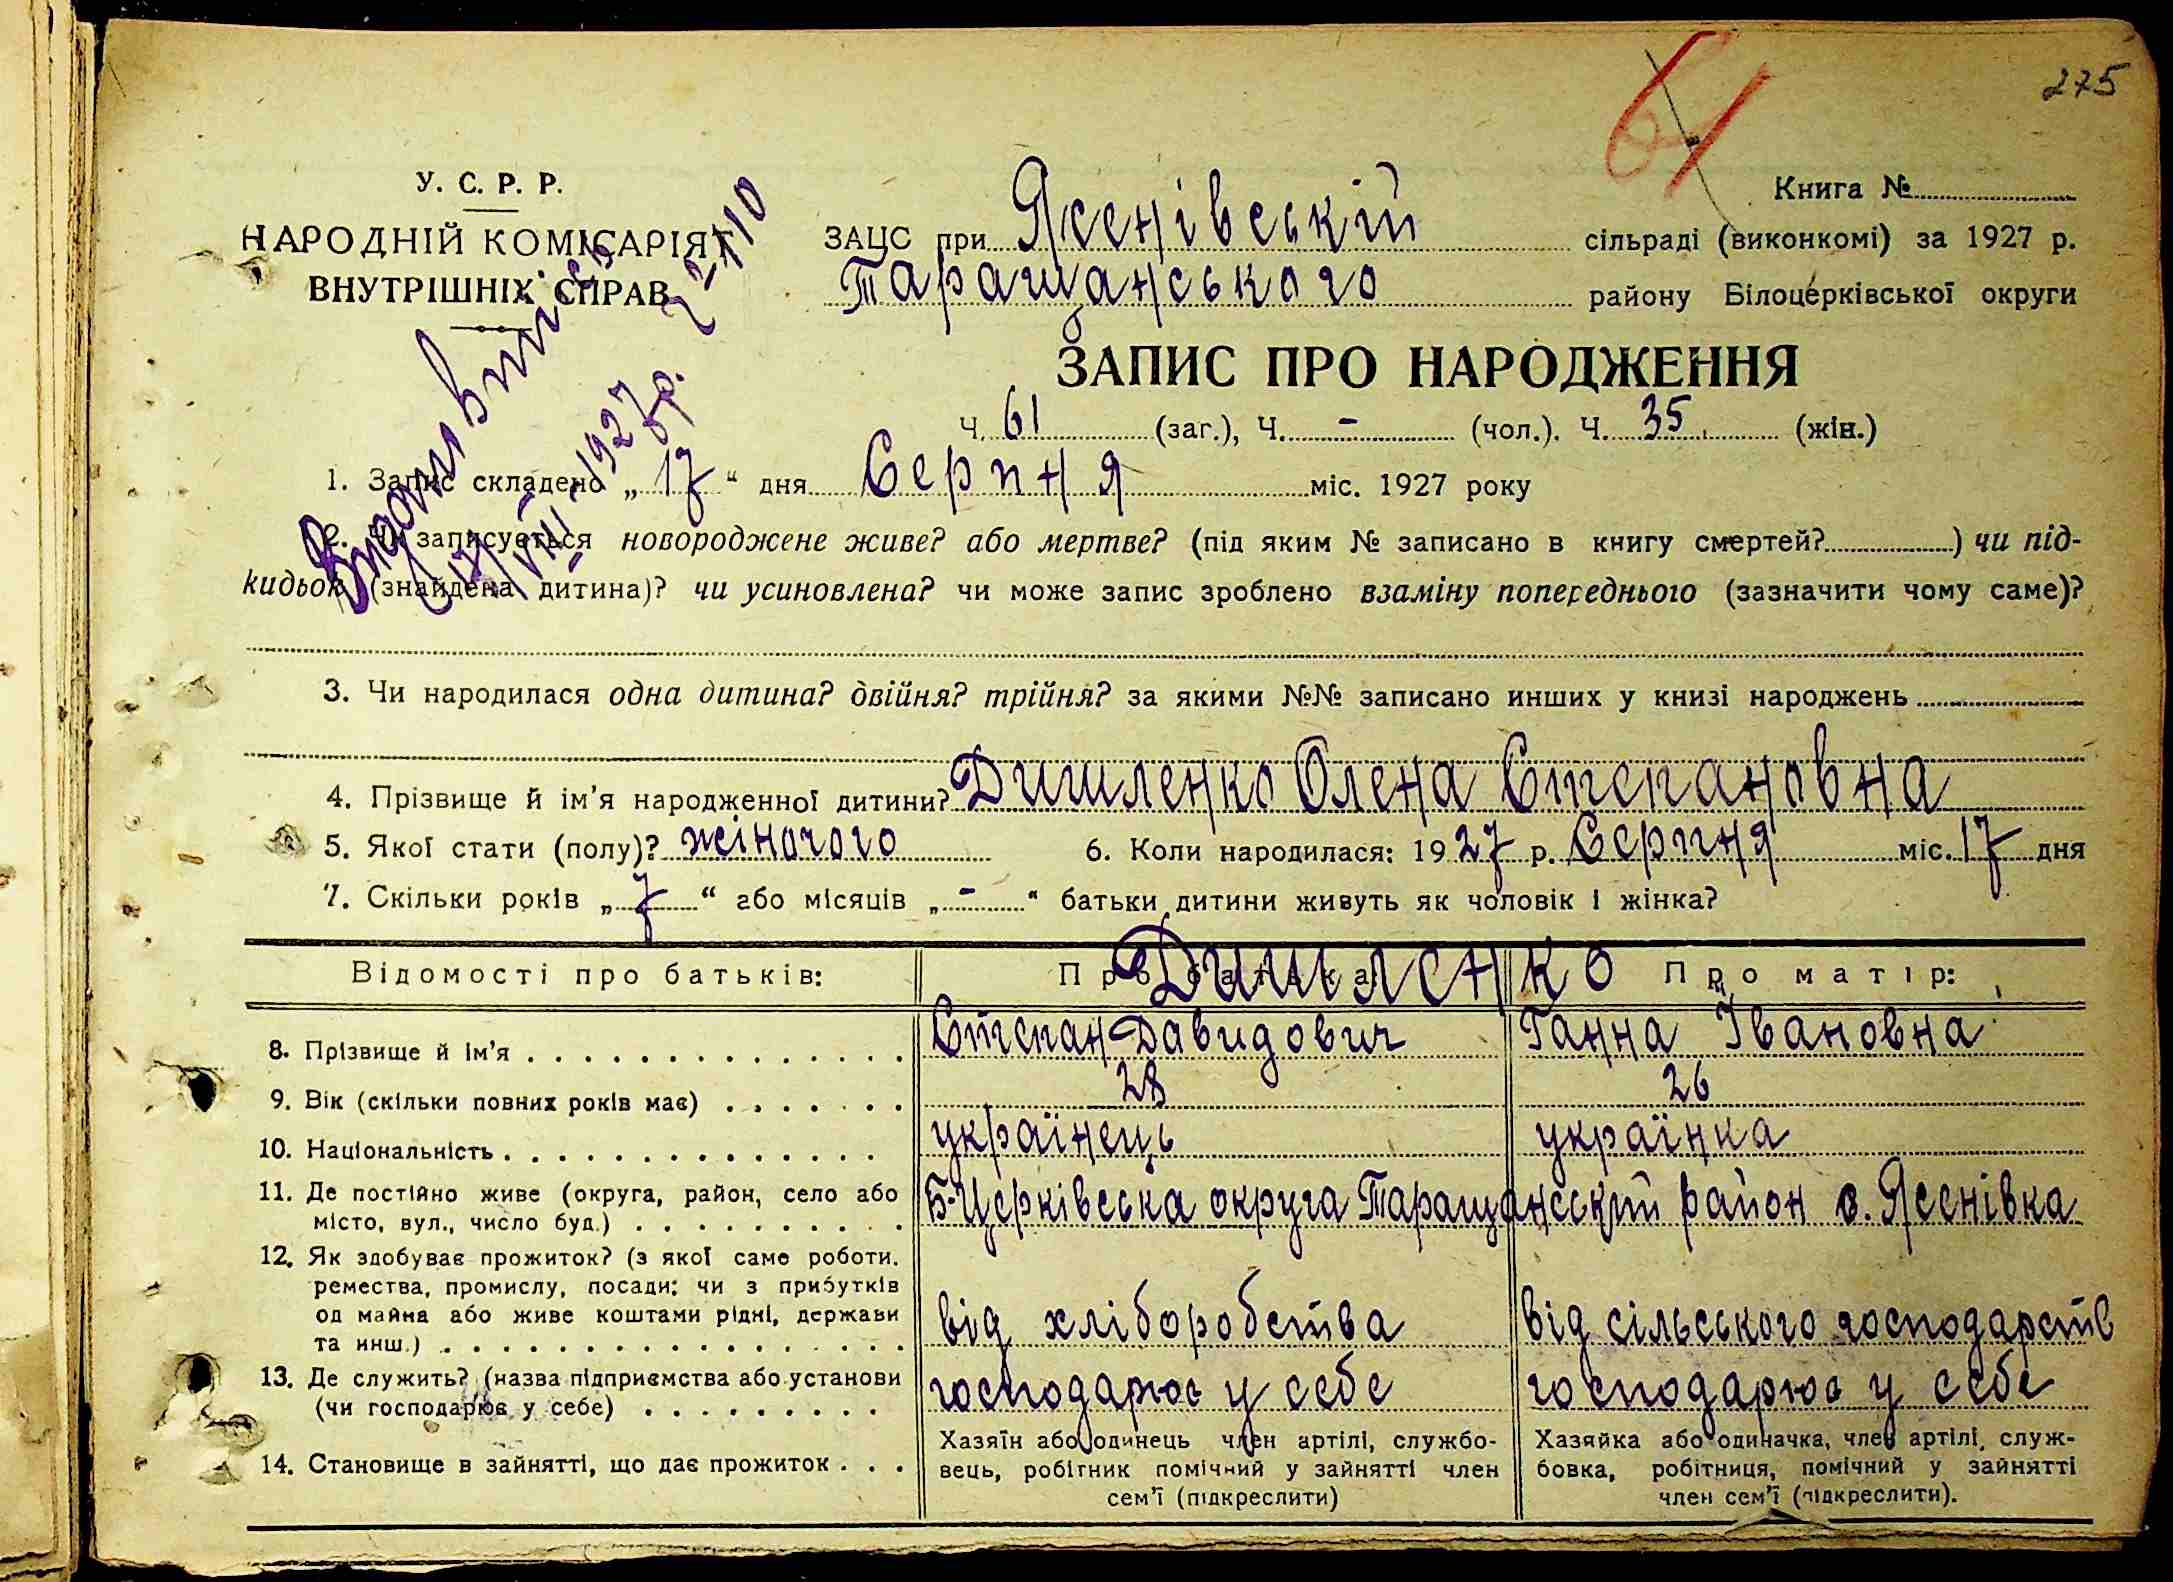 61
275
У. С. Р. Р.
НАРОДНІЙ КОМІСАРІЯТ
ВНУТРІШНІХ СПРАВ
Книга №
ЗАЦС при Ясенівській сільраді (виконкомі) за 1927 р.
Таращанського району Білоцерківської округи
ЗАПИС ПРО НАРОДЖЕННЯ
Ч. 61 (заг.), Ч. - (чол.). Ч. 35 (жін.)
1. Запис складено „17“ дня Серпня міс. 1927 року
2. Чи записується новороджене живе? або мертве? (під яким № записано в книгу смертей? ) чи під-
кидьок (знайдена дитина)? чи усиновлена? чи може запис зроблено взаміну попереднього (зазначити чому саме)?
3. Чи народилася одна дитина? двійня? трійня? за якими №№ записано инших у книзі народжень
4. Прізвище й ім'я народженної дитини? Дишленко Олена Степановна
5. Якої стати (полу)? жіночого 6. Коли народилася: 1927 р. Серпня міс. 17 дня
7. Скільки років „7“ або місяців „-“ батьки дитини живуть як чоловік і жінка?
Відомості про батьків: Про батька: Про матір:
Дишленко
8. Прізвище й ім'я Степан Давидович Ганна Івановна
9. Вік (скільки повних років має) 28 26
10. Національність українець українка
11. Де постійно живе (округа, район, село або
місто, вул., число буд.) Б-Церківська округа Таращанський район с. Ясенівка
12. Як здобуває прожиток? (з якої саме роботи,
ремества, промислу, посади; чи з прибутків
од майна або живе коштами рідні, держави
та инш.) від хліборобства від сільського господарств
13. Де служить? (назва підприємства або установи
(чи господарює у себе) господарює у себе господарює у себе
14. Становище в зайнятті, що дає прожиток
Хазяїн або одинець член артілі, службо-
вець, робітник помічний у зайнятті член
сем'ї (підкреслити)
Хазяйка або одиначка, член артілі, служ-
бовка, робітниця, помічний у зайнятті
член сем'ї (підкреслити).
17/VIII-1927р.